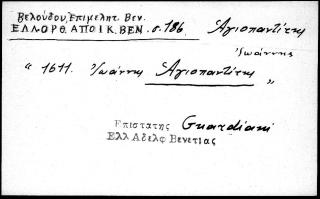 Βελούδου, Επιμελητ. Βεν.
ΕΛΛ. ΟΡΘ. ΑΠΟΙΚ. ΒΕΝ. σ. 186 Ἁγιοπαντίτης
Ἰωάννης
" 1611. Ἰωάννης Ἁγιοπαντίτης "
Επιστατης Guardiani
Ελλ Αδελφ Βενετιας